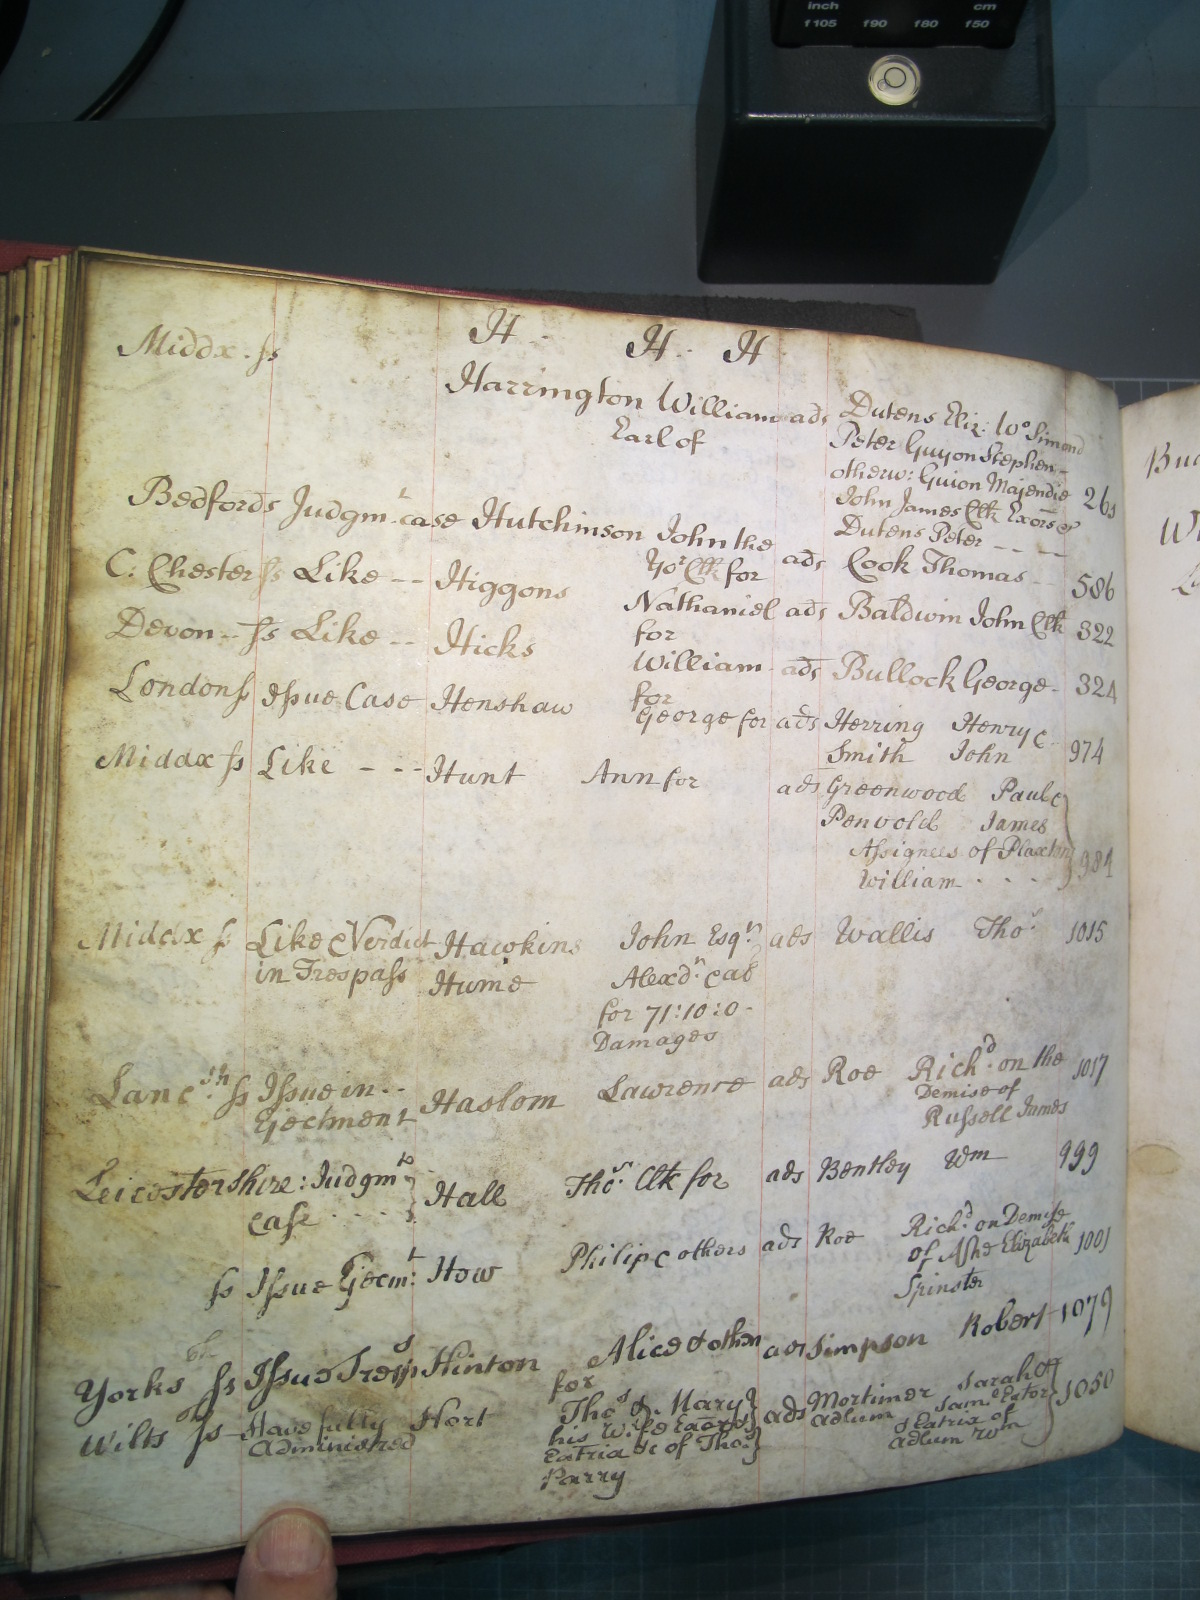 inch cm
f105 f90 f80 f50
H H H
Middx. ss Harrington William ads Dutens Eliz: Wo Simond
Earl of Peter Guyon Stephen
otherw: Guion Majendie 26
John James Clk Exors of
Dutens Peter
Bedfords Judgmt case Hutchinson John the ads Cook Thomas 586
Yor Clk for
C. Chester ss Like Higgons Nathaniel ads Baldwin John Clk 322
for
Devon ss Like Hicks William ads Bullock George 324
for
London ss Issue Case Henshaw George for ads Herring Henry &
Smith John 974
Middx ss Like Hunt Ann for ads Greenwood Paul &
Penvold James
Assignees of Plaxton
William 984
Middx ss Like & Verdict Hawkins John Esqr ads Wallis Thos 1015
in Trespass Hume Alexdr
for 71:10:0
Damages
Lanc ss Issue in Haslom Lawrence ads Roe Richd on the 1017
Ejectment Demise of
Russell James
Leicestershire: Judgmt Hall Thos Clk for ads Bentley Wm 999
Case
ss Issue Ejecmt How Philip & others ads Roe Richd on Demise
of Ashe Elizabeth 1001
Spinster
Yorks ss Issue Tresp Hinton Alice & others ads Simpson Robert 1079
for
Wilts ss Have fully Hort Thos & Mary ads Mortimer Sarah & 1050
Administred his Wife Adlum Saml Extor
Extria &c of Thos & Extrix of
Parry Adlum Wm